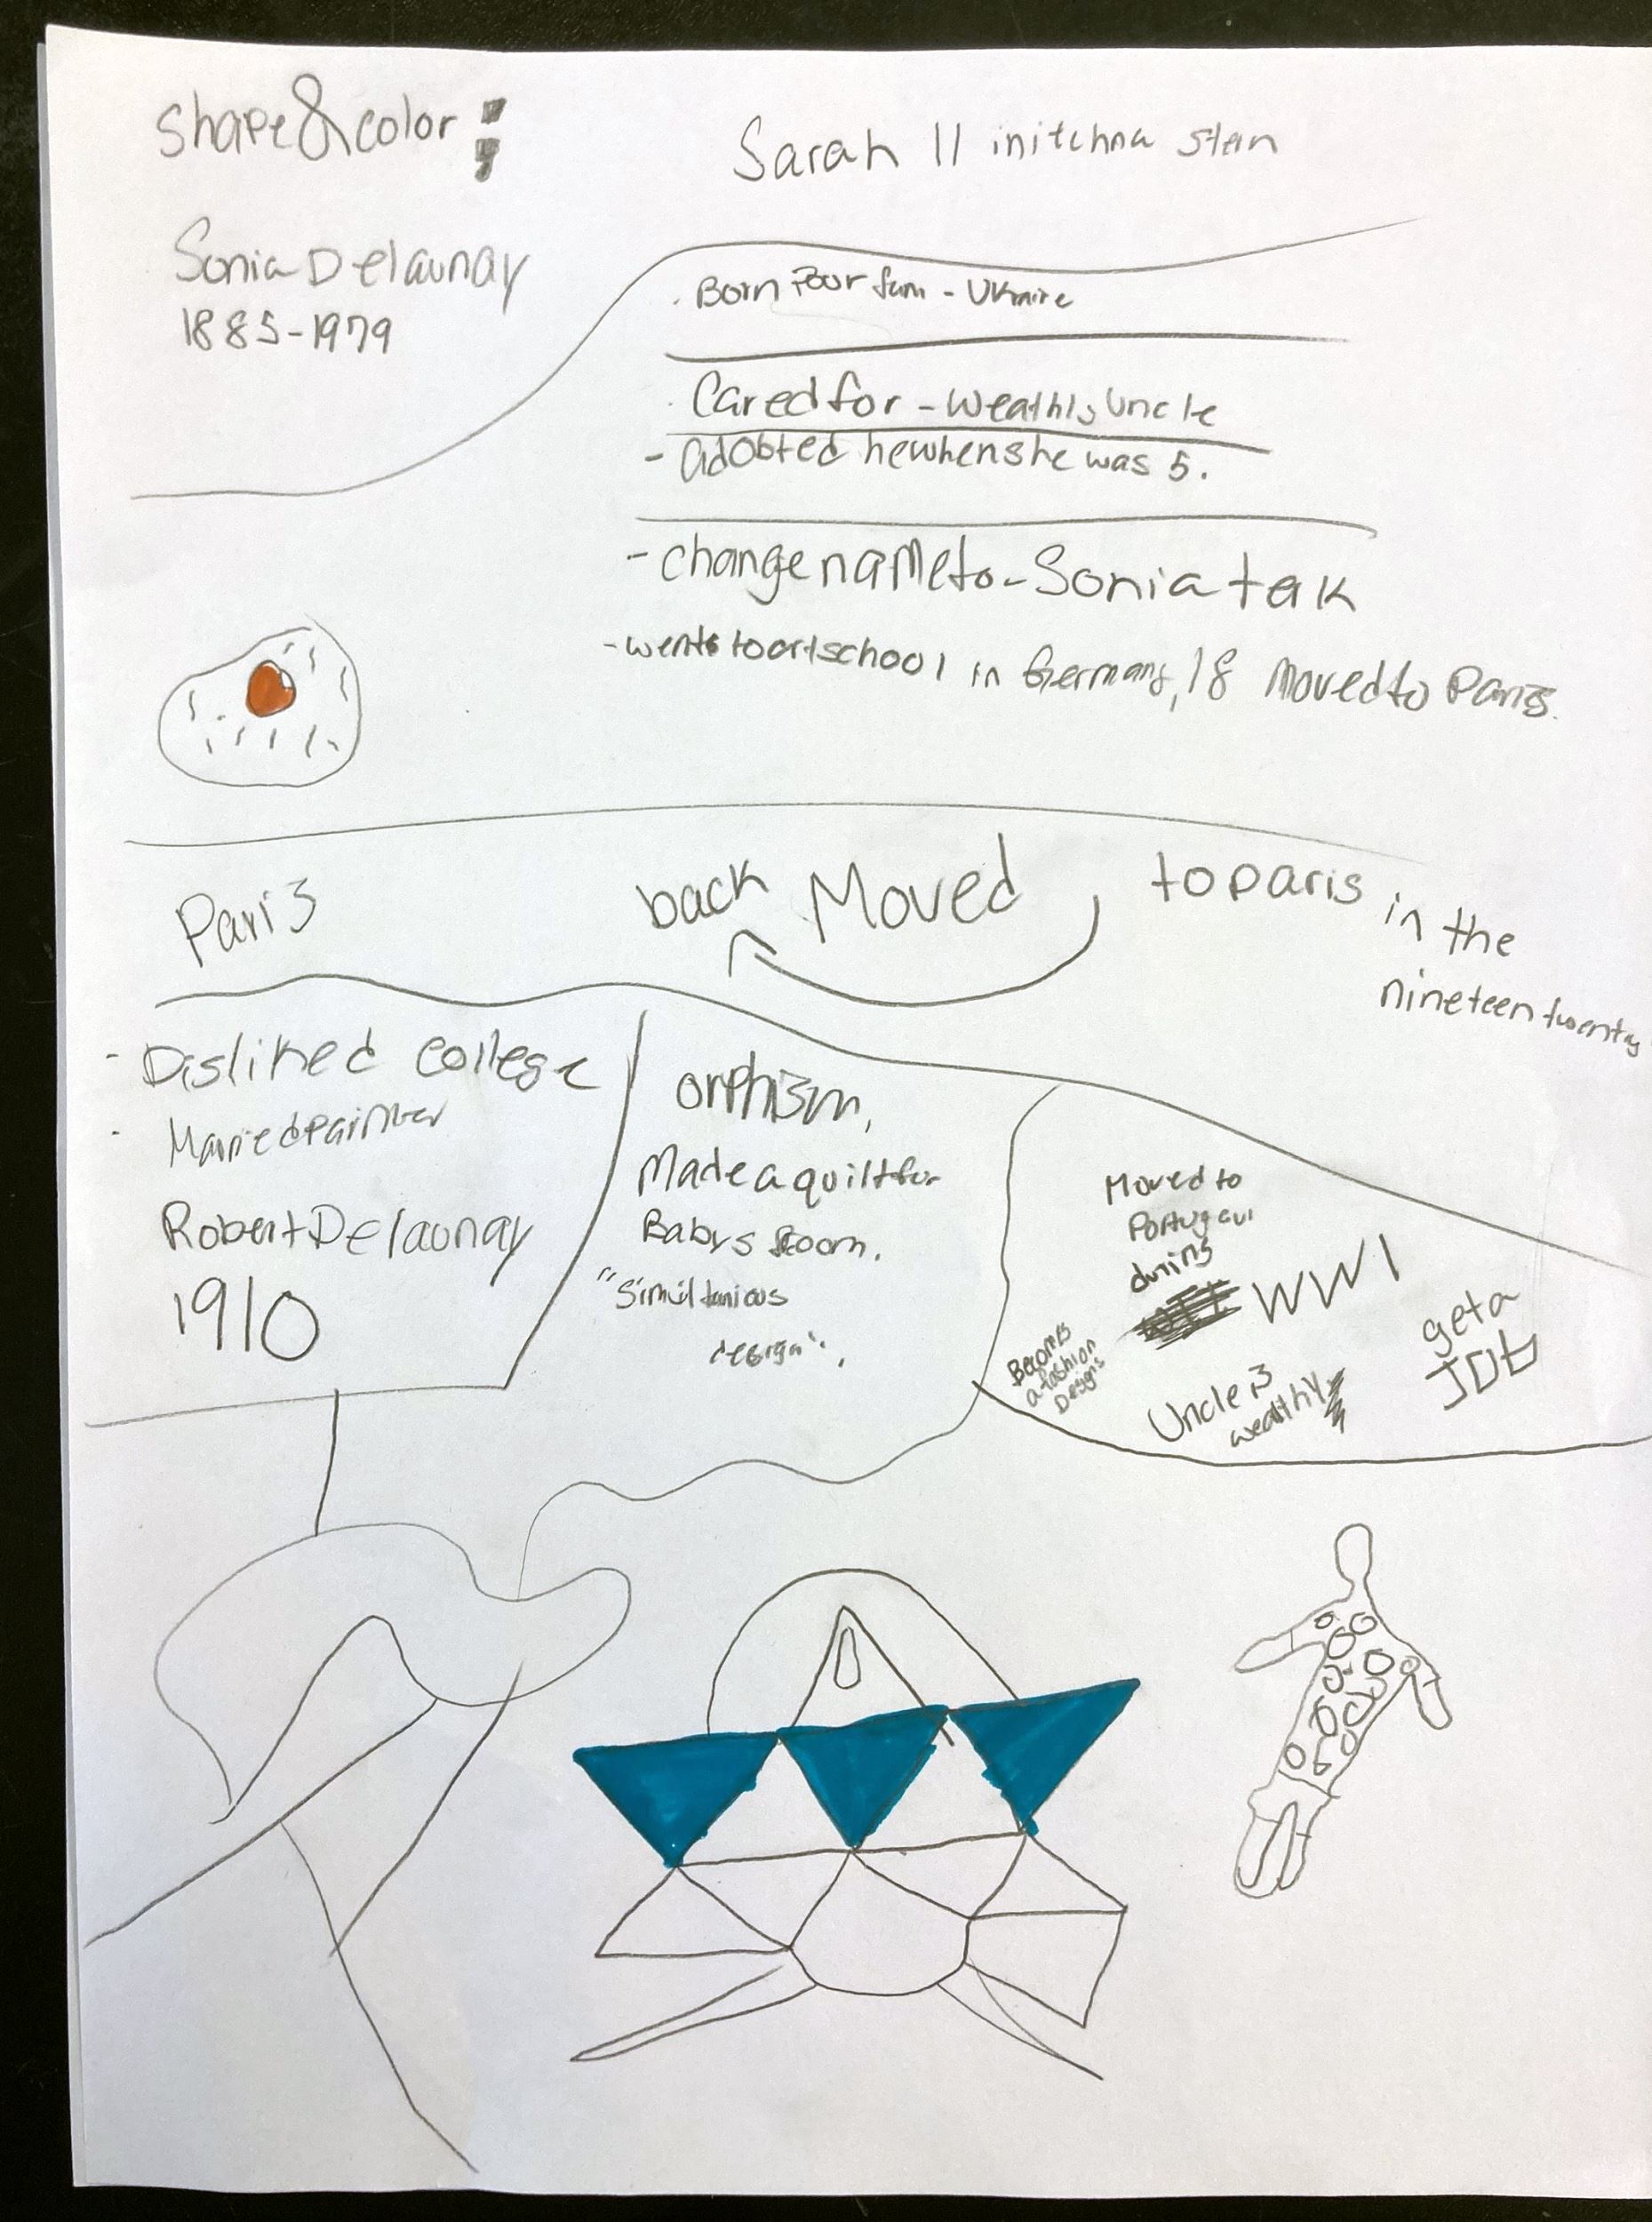 Shape & color :
Sarah 11 initchna stern
Sonia Delaunay
1885-1979
. Born Poor fam - Ukraine
. Cared for - weathly Uncle
- adobted he when she was 5.
- change name to - Sonia terk
- went to art school in Germany, 18 Moved to Paris.
Paris
back Moved to paris in the
nineteen twentys
- Disliked college
- Married painter
Robert Delaunay
1910
orphism,
Made a quilt for
Babys Room.
"Simultanious
design".
Moved to
Portugaul
during
WW1
Becomes
a fashion
Designs
Uncle is
wealthly
get a
JOb